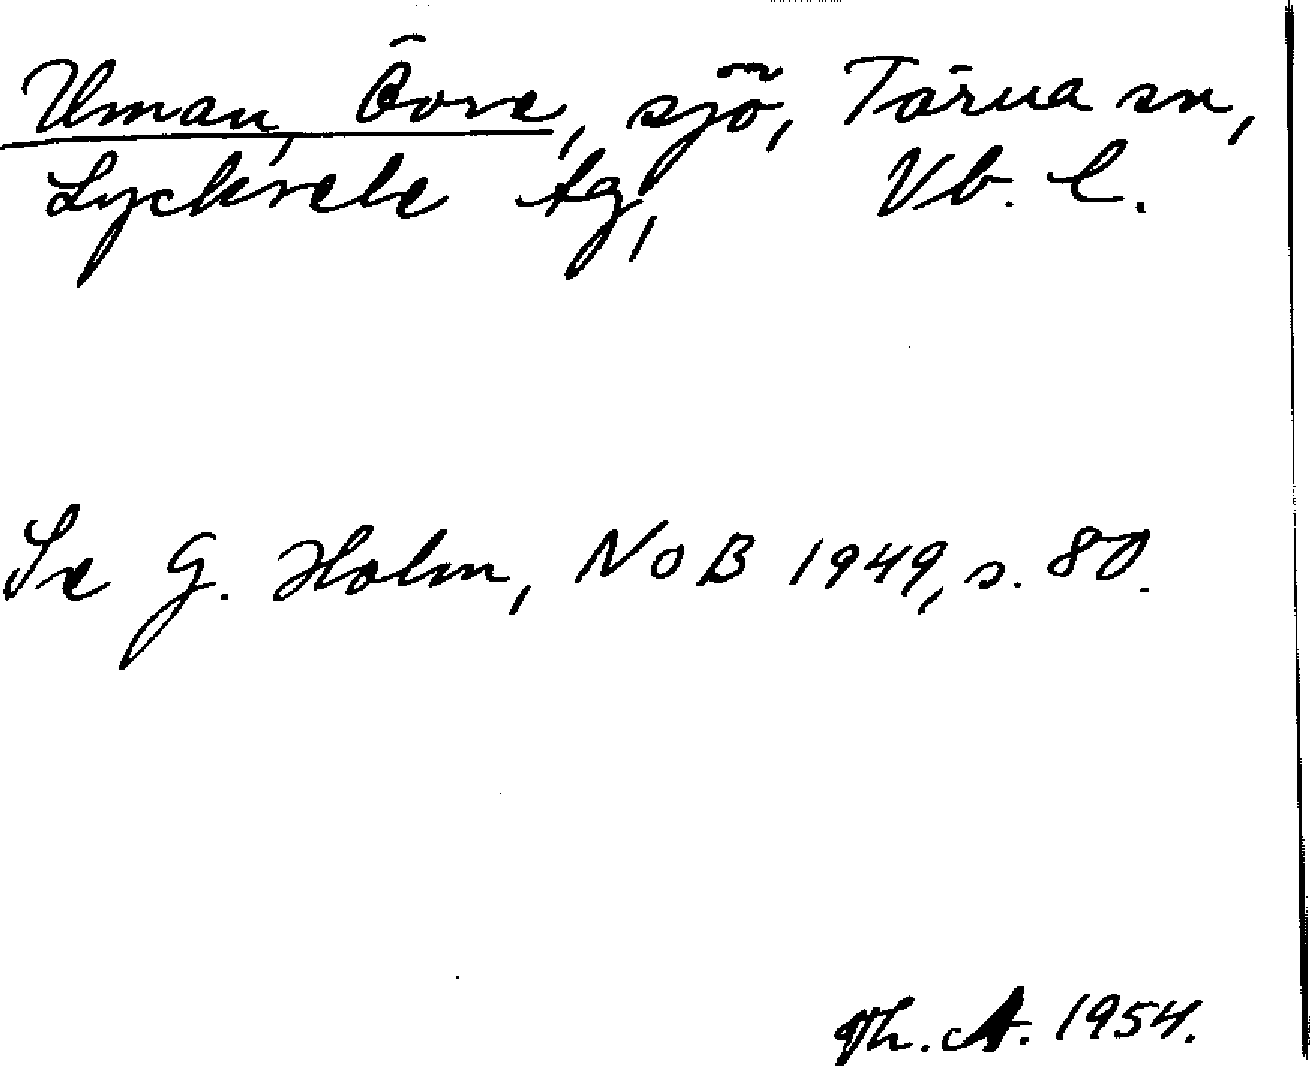 Uman, Övre, sjö, Tärna sn,
Lycksele tg, Vb. l.
Se G. Holm, NoB 1949, s. 80.
Th. A. 1954.